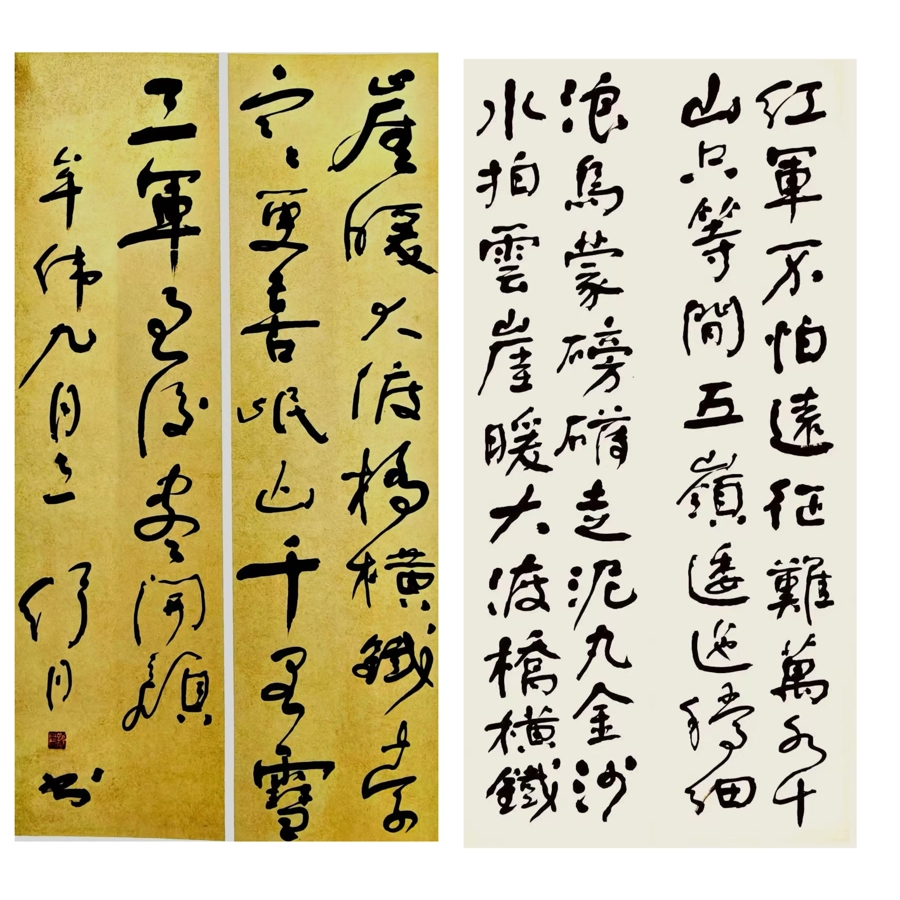 紅軍不怕遠征難萬水千
山只等閒五嶺逶迤騰細
浪烏蒙磅礡走泥丸金沙
水拍雲崖暖大渡橋橫鐵
崖暖大渡橋橫鐵索
寒更喜岷山千里雪
三軍過後盡開顏
年九月
月書